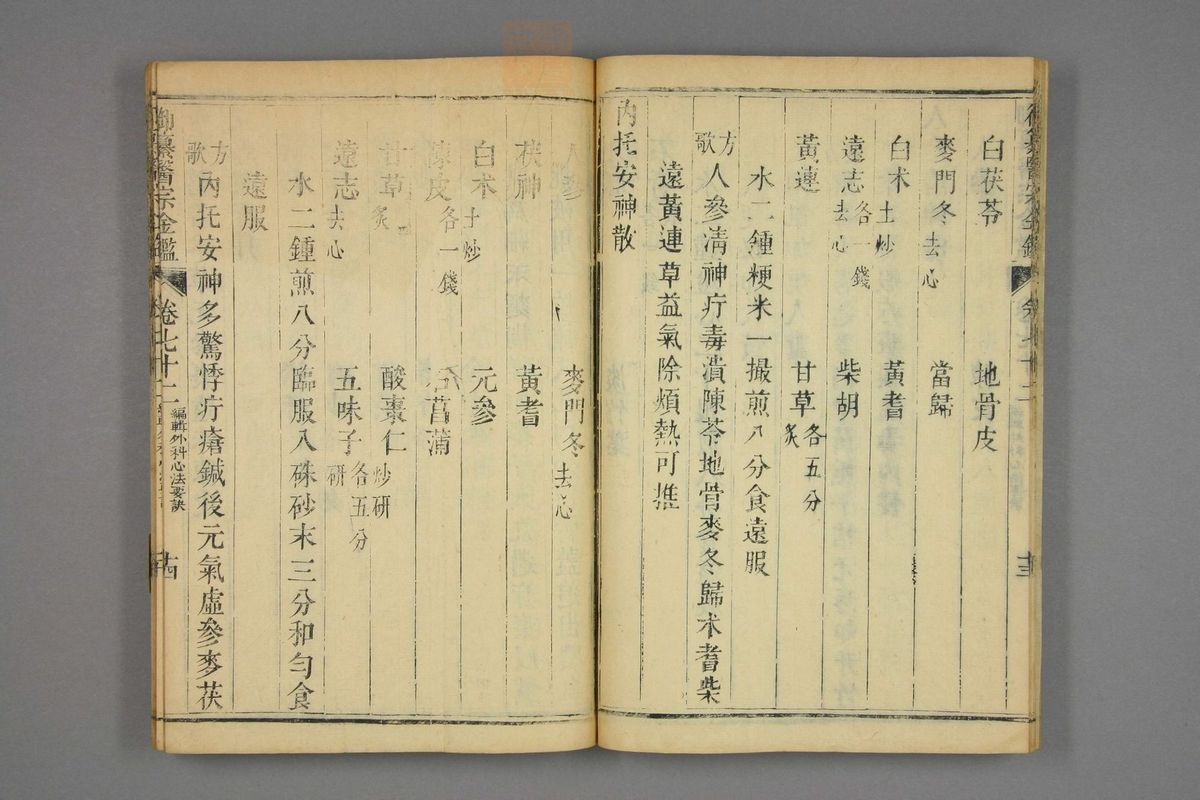 白茯苓　地骨皮
麥門冬去心　當歸
白术土炒　黃耆
遠志去心　各一錢　柴胡
黃連　甘草炙　各五分
水二鍾粳米一撮煎八分食遠服
方歌　人參清神疔毒潰陳苓地骨麥冬歸术耆柴
遠黃連草益氣除煩熱可推
內托安神散
人參　麥門冬去心
茯神　黃耆
白术土炒　元參
陳皮各一錢　石菖蒲
甘草炙　酸棗仁炒研
遠志去心　五味子研　各五分
水二鍾煎八分臨服入硃砂末三分和勻食
遠服
方歌　內托安神多驚悸疔瘡鍼後元氣虛參麥茯
御纂醫宗金鑑　卷七十二　編輯外科心法要訣　十四